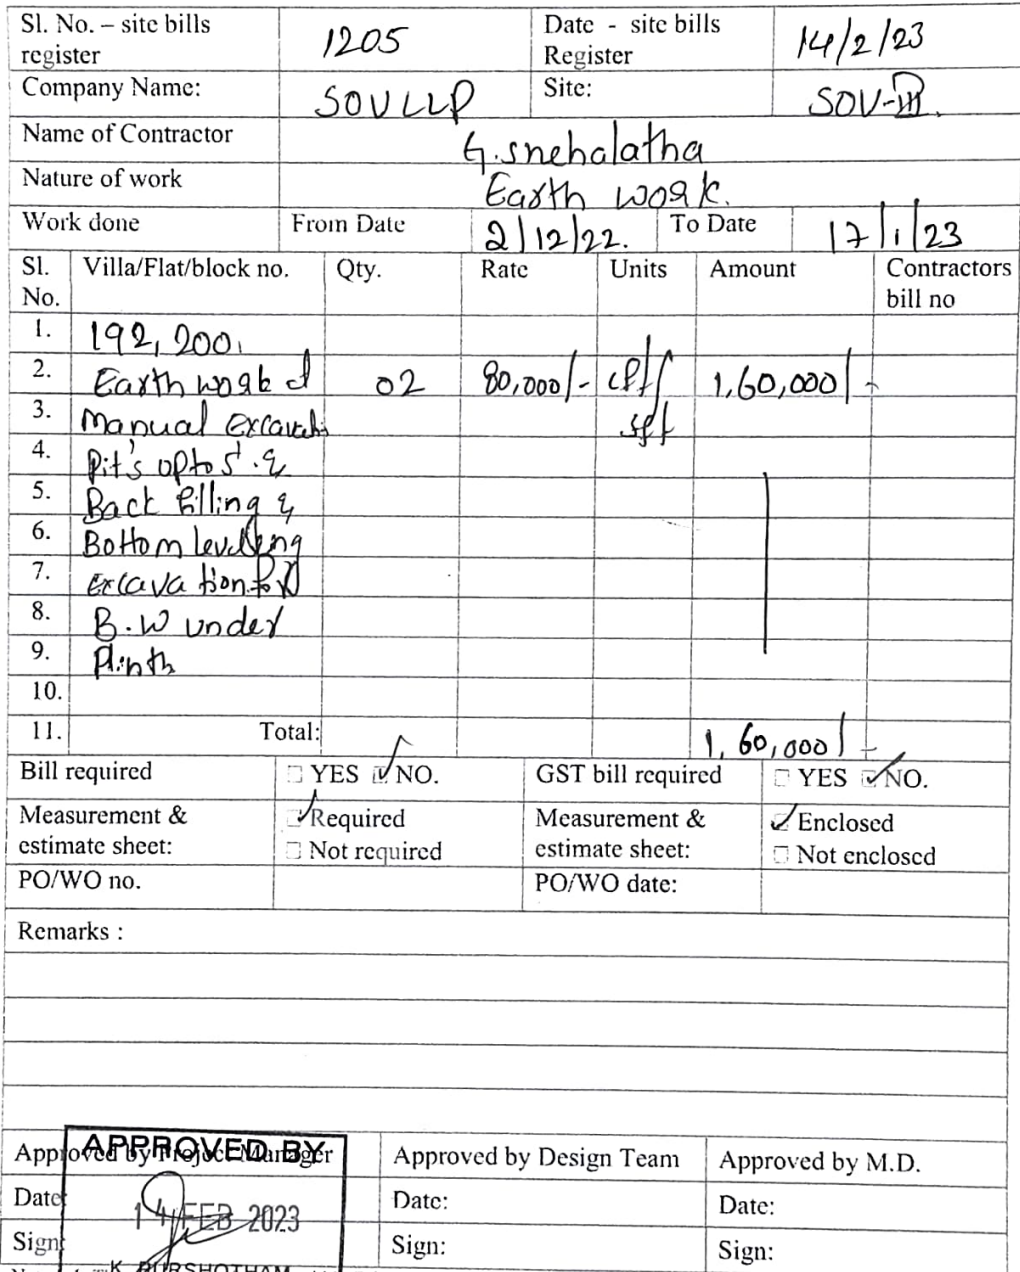 Sl. No. – site bills register 1205 Date - site bills Register 14/2/23
Company Name: SOVLLP Site: SOV-III.
Name of Contractor G.snehalatha
Nature of work Earth work.
Work done From Date 2/12/22. To Date 17/1/23
Sl. No. Villa/Flat/block no. Qty. Rate Units Amount Contractors bill no
1. 192, 200.
2. Earth work of 02 80,000/- cft/ 1,60,000/-
3. Manual Excavati sft
4. Pit's upto 5'. &
5. Back filling &
6. Bottom levelling
7. Excavation for
8. B.W under
9. Plinth
10.
11. Total: 1,60,000/-
Bill required YES NO. GST bill required YES NO.
Measurement & estimate sheet: Required Not required Measurement & estimate sheet: Enclosed Not enclosed
PO/WO no. PO/WO date:
Remarks :
Approved by Project Manager Approved by Design Team Approved by M.D.
APPROVED BY
Date: 14 FEB 2023 Date: Date:
Sign: Sign: Sign:
K. PURSHOTHAM